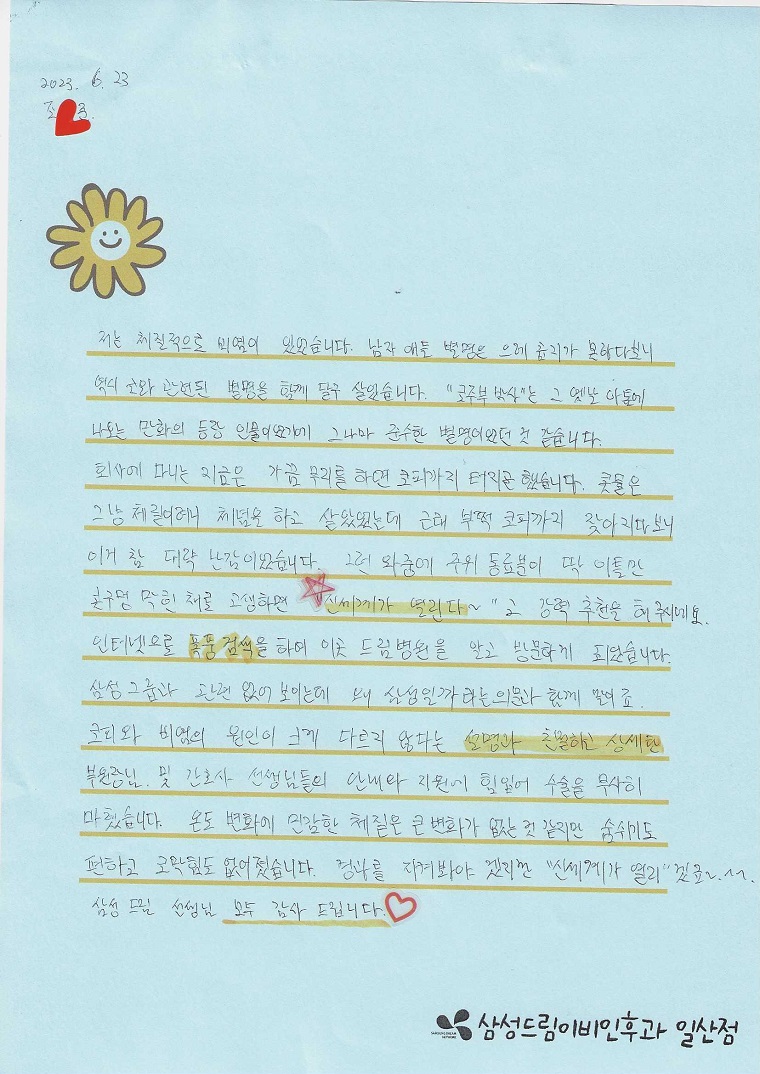 2023. 6. 23
조 호.
저는 체질적으로 비염이 있었습니다. 남자 애들 별명은 으레 곱지가 못하다보니
역시 코와 관련된 별명을 함께 달구 살았습니다. "코주부 박사"는 그 옛날 아톰에
나오는 만화의 등장 인물이었기에 그나마 준수한 별명이었던 것 같습니다.
회사에 다니는 지금은 가끔 무리를 하면 코피까지 터지곤 했습니다. 콧물은
그냥 체질이려니 체념을 하고 살았었는데 근래 부쩍 코피까지 잦아지다보니
이거 참 대략 난감이었습니다. 그런 와중에 주위 동료분이 딱 이틀만
콧구멍 막힌 채로 고생하면 "신세계가 열린다~"고 강력 추천을 해 주시네요.
인터넷으로 폭풍 검색을 하여 이곳 드림병원을 알고 방문하게 되었습니다.
삼성그룹과 관련 없어 보이는데 왜 삼성일까라는 의문과 함께 말이죠.
코피와 비염의 원인이 크게 다르지 않다는 설명과 친절하고 상세한
부원장님. 및 간호사 선생님들의 안내와 지원에 힘입어 수술을 무사히
마쳤습니다. 온도 변화에 민감한 체질은 큰 변화가 없는 것 같지만 숨쉬기도
편하고 코막힘도 없어졌습니다. 경과를 지켜봐야 겠지만 "신세계가 열리"겠죠~.~~.
삼성 드림 선생님 모두 감사 드립니다.
SAMSUNG DREAM NETWORK
삼성드림이비인후과 일산점